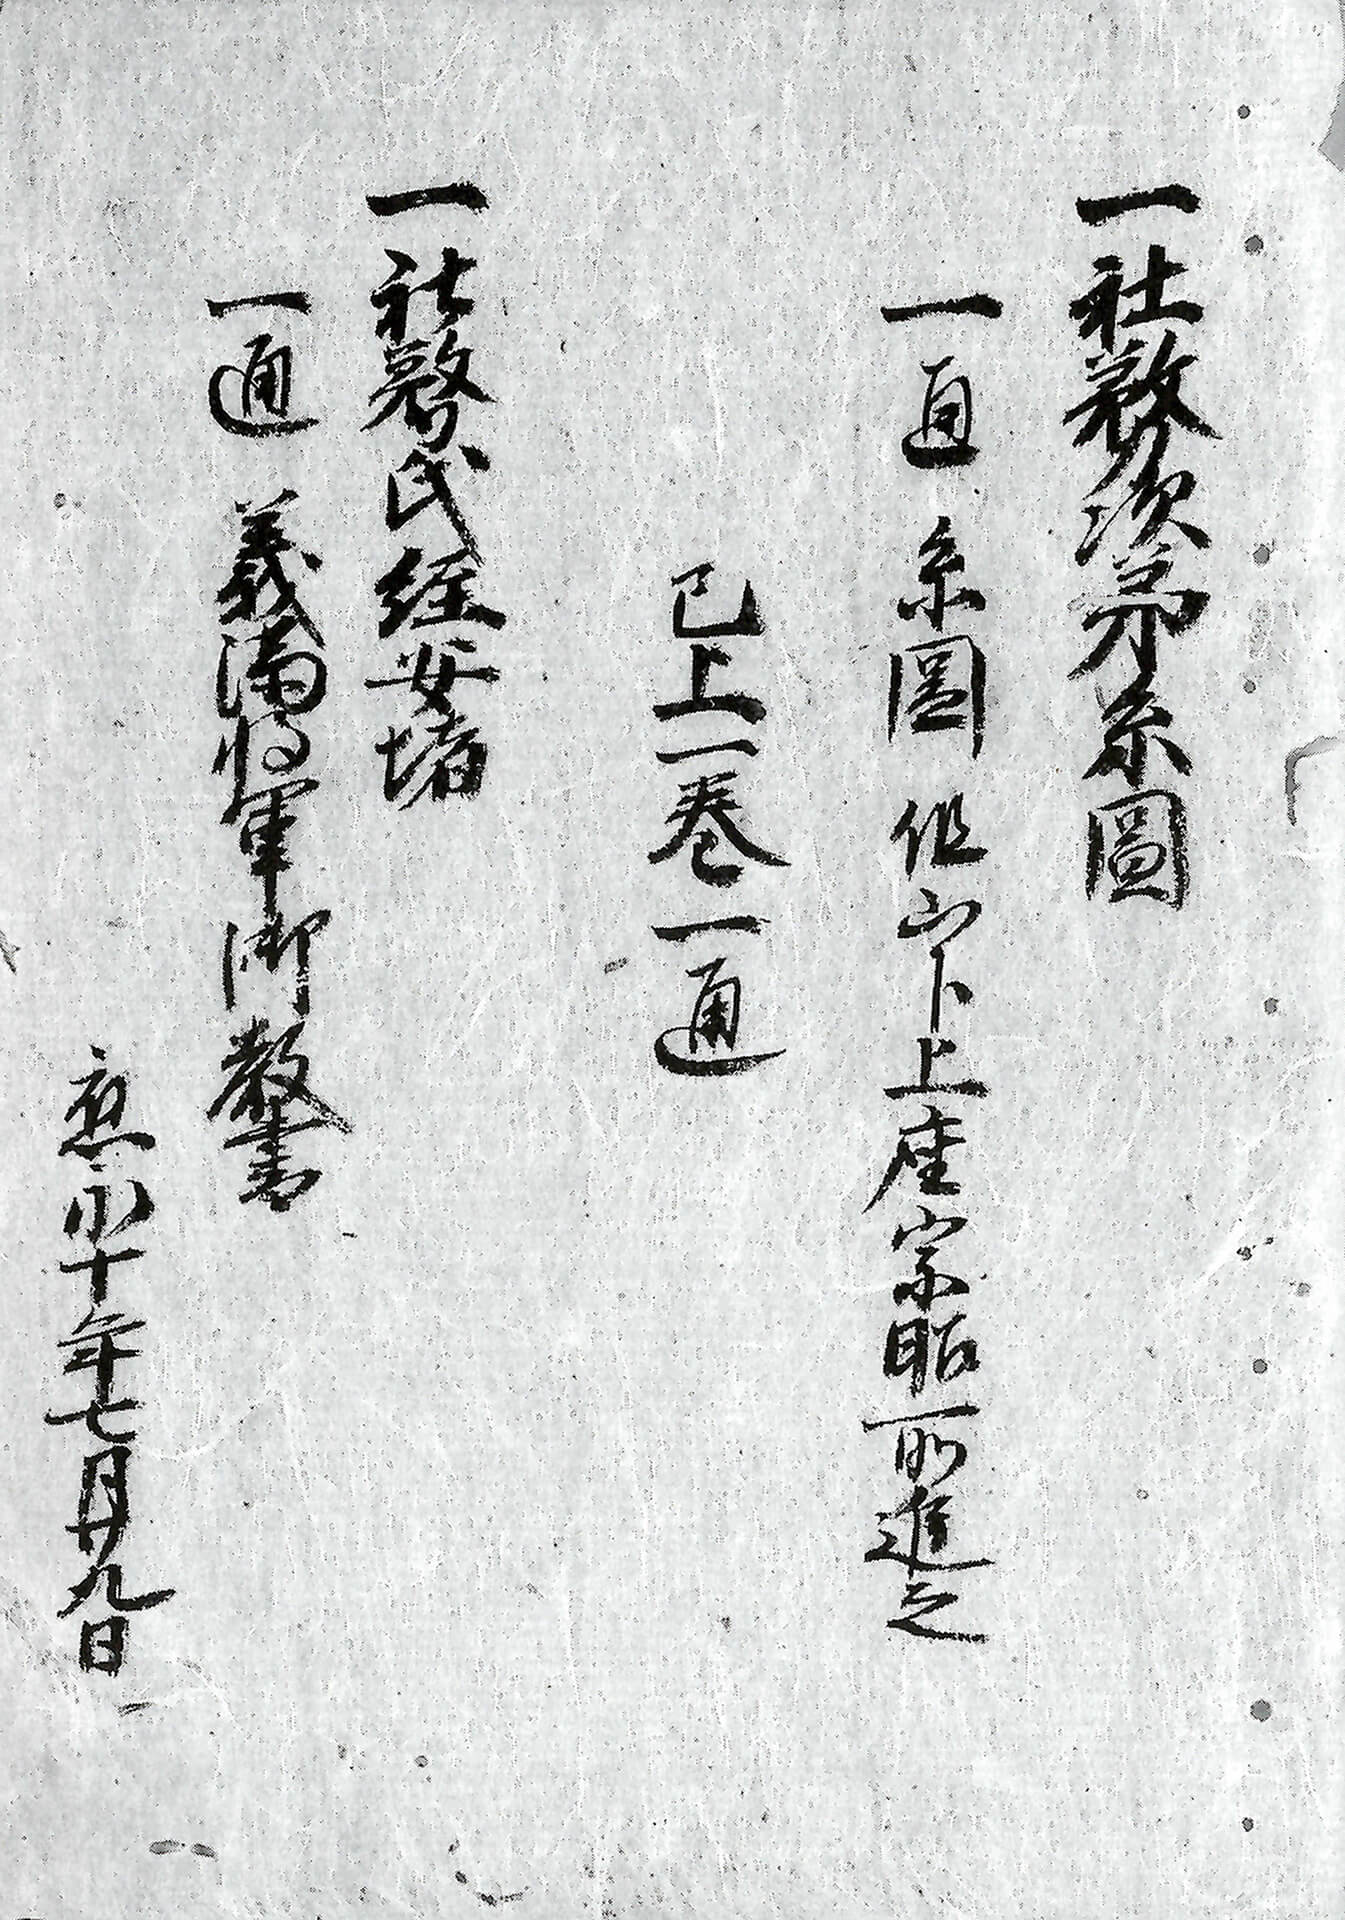 一社務次第系圖
一通系圖 但山下上座宗昭所進之
已上一巻一通
一社務氏経安堵
一通 義満将軍御教書
應永十年七月廿九日